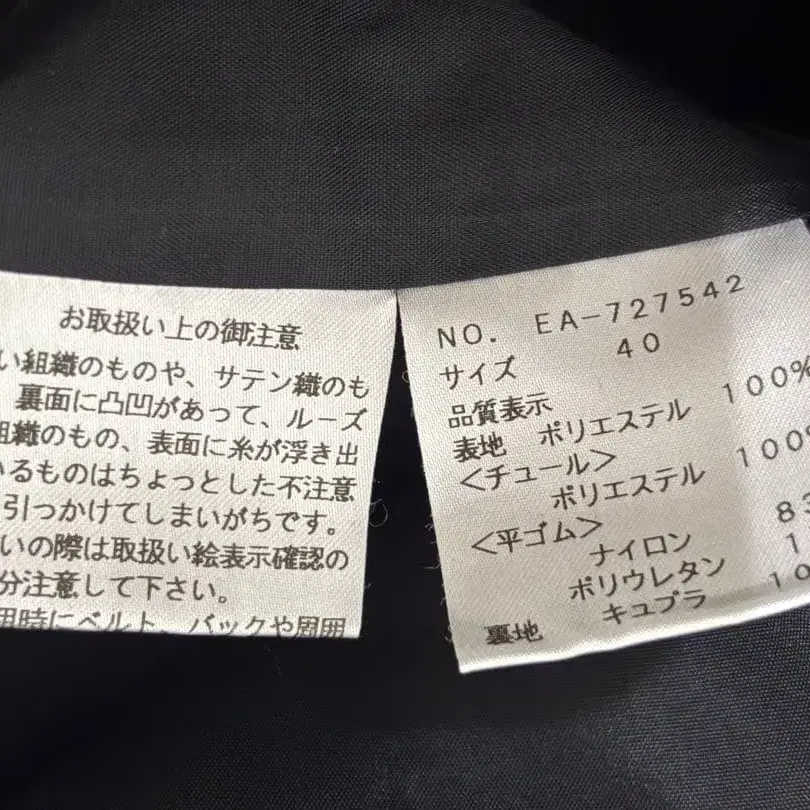 お取扱い上の御注意
い組織のものや、サテン織のも
裏面に凸凹があって、ルーズ
組織のもの、表面に糸が浮き出
いるものはちょっとした不注意
引っかけてしまいがちです。
いの際は取扱い絵表示確認の
分注意して下さい。
用時にベルト、バックや周囲
NO. EA-727542
サイズ 40
品質表示
表地 ポリエステル 100%
<チュール>
ポリエステル 100%
<平ゴム>
ナイロン 83
ポリウレタン 1
裏地 キュプラ 10